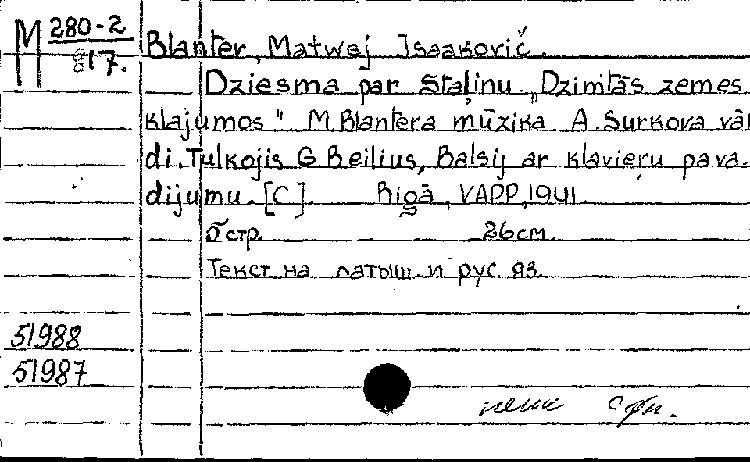 M 280-2
817.
Blanter, Matwej Isaakovič.
Dziesma par Staļinu „Dzimtās zemes
klajumos" M. Blantera mūzika A. Surkova vār
di. Tulkojis G. Reilius, Balsij ar klavieru pava-
dijumu. [C] Rīgā, VAPP, 1941
5 стр. 26 см.
Текст на латыш. и рус. яз.
51988
51987